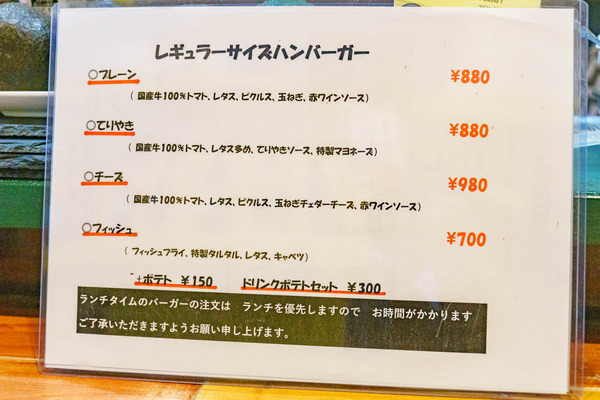 レギュラーサイズハンバーガー
○プレーン ¥880
( 国産牛100%トマト、レタス、ピクルス、玉ねぎ、赤ワインソース)
○てりやき ¥880
( 国産牛100%トマト、レタス多め、てりやきソース、特製マヨネーズ)
○チーズ ¥980
( 国産牛100%トマト、レタス、ピクルス、玉ねぎチェダーチーズ、赤ワインソース)
○フィッシュ ¥700
( フィッシュフライ、特製タルタル、レタス、キャベツ)
+ポテト ¥150 ドリンクポテトセット ¥300
ランチタイムのバーガーの注文は ランチを優先しますので お時間がかかります
ご了承いただきますようお願い申し上げます。